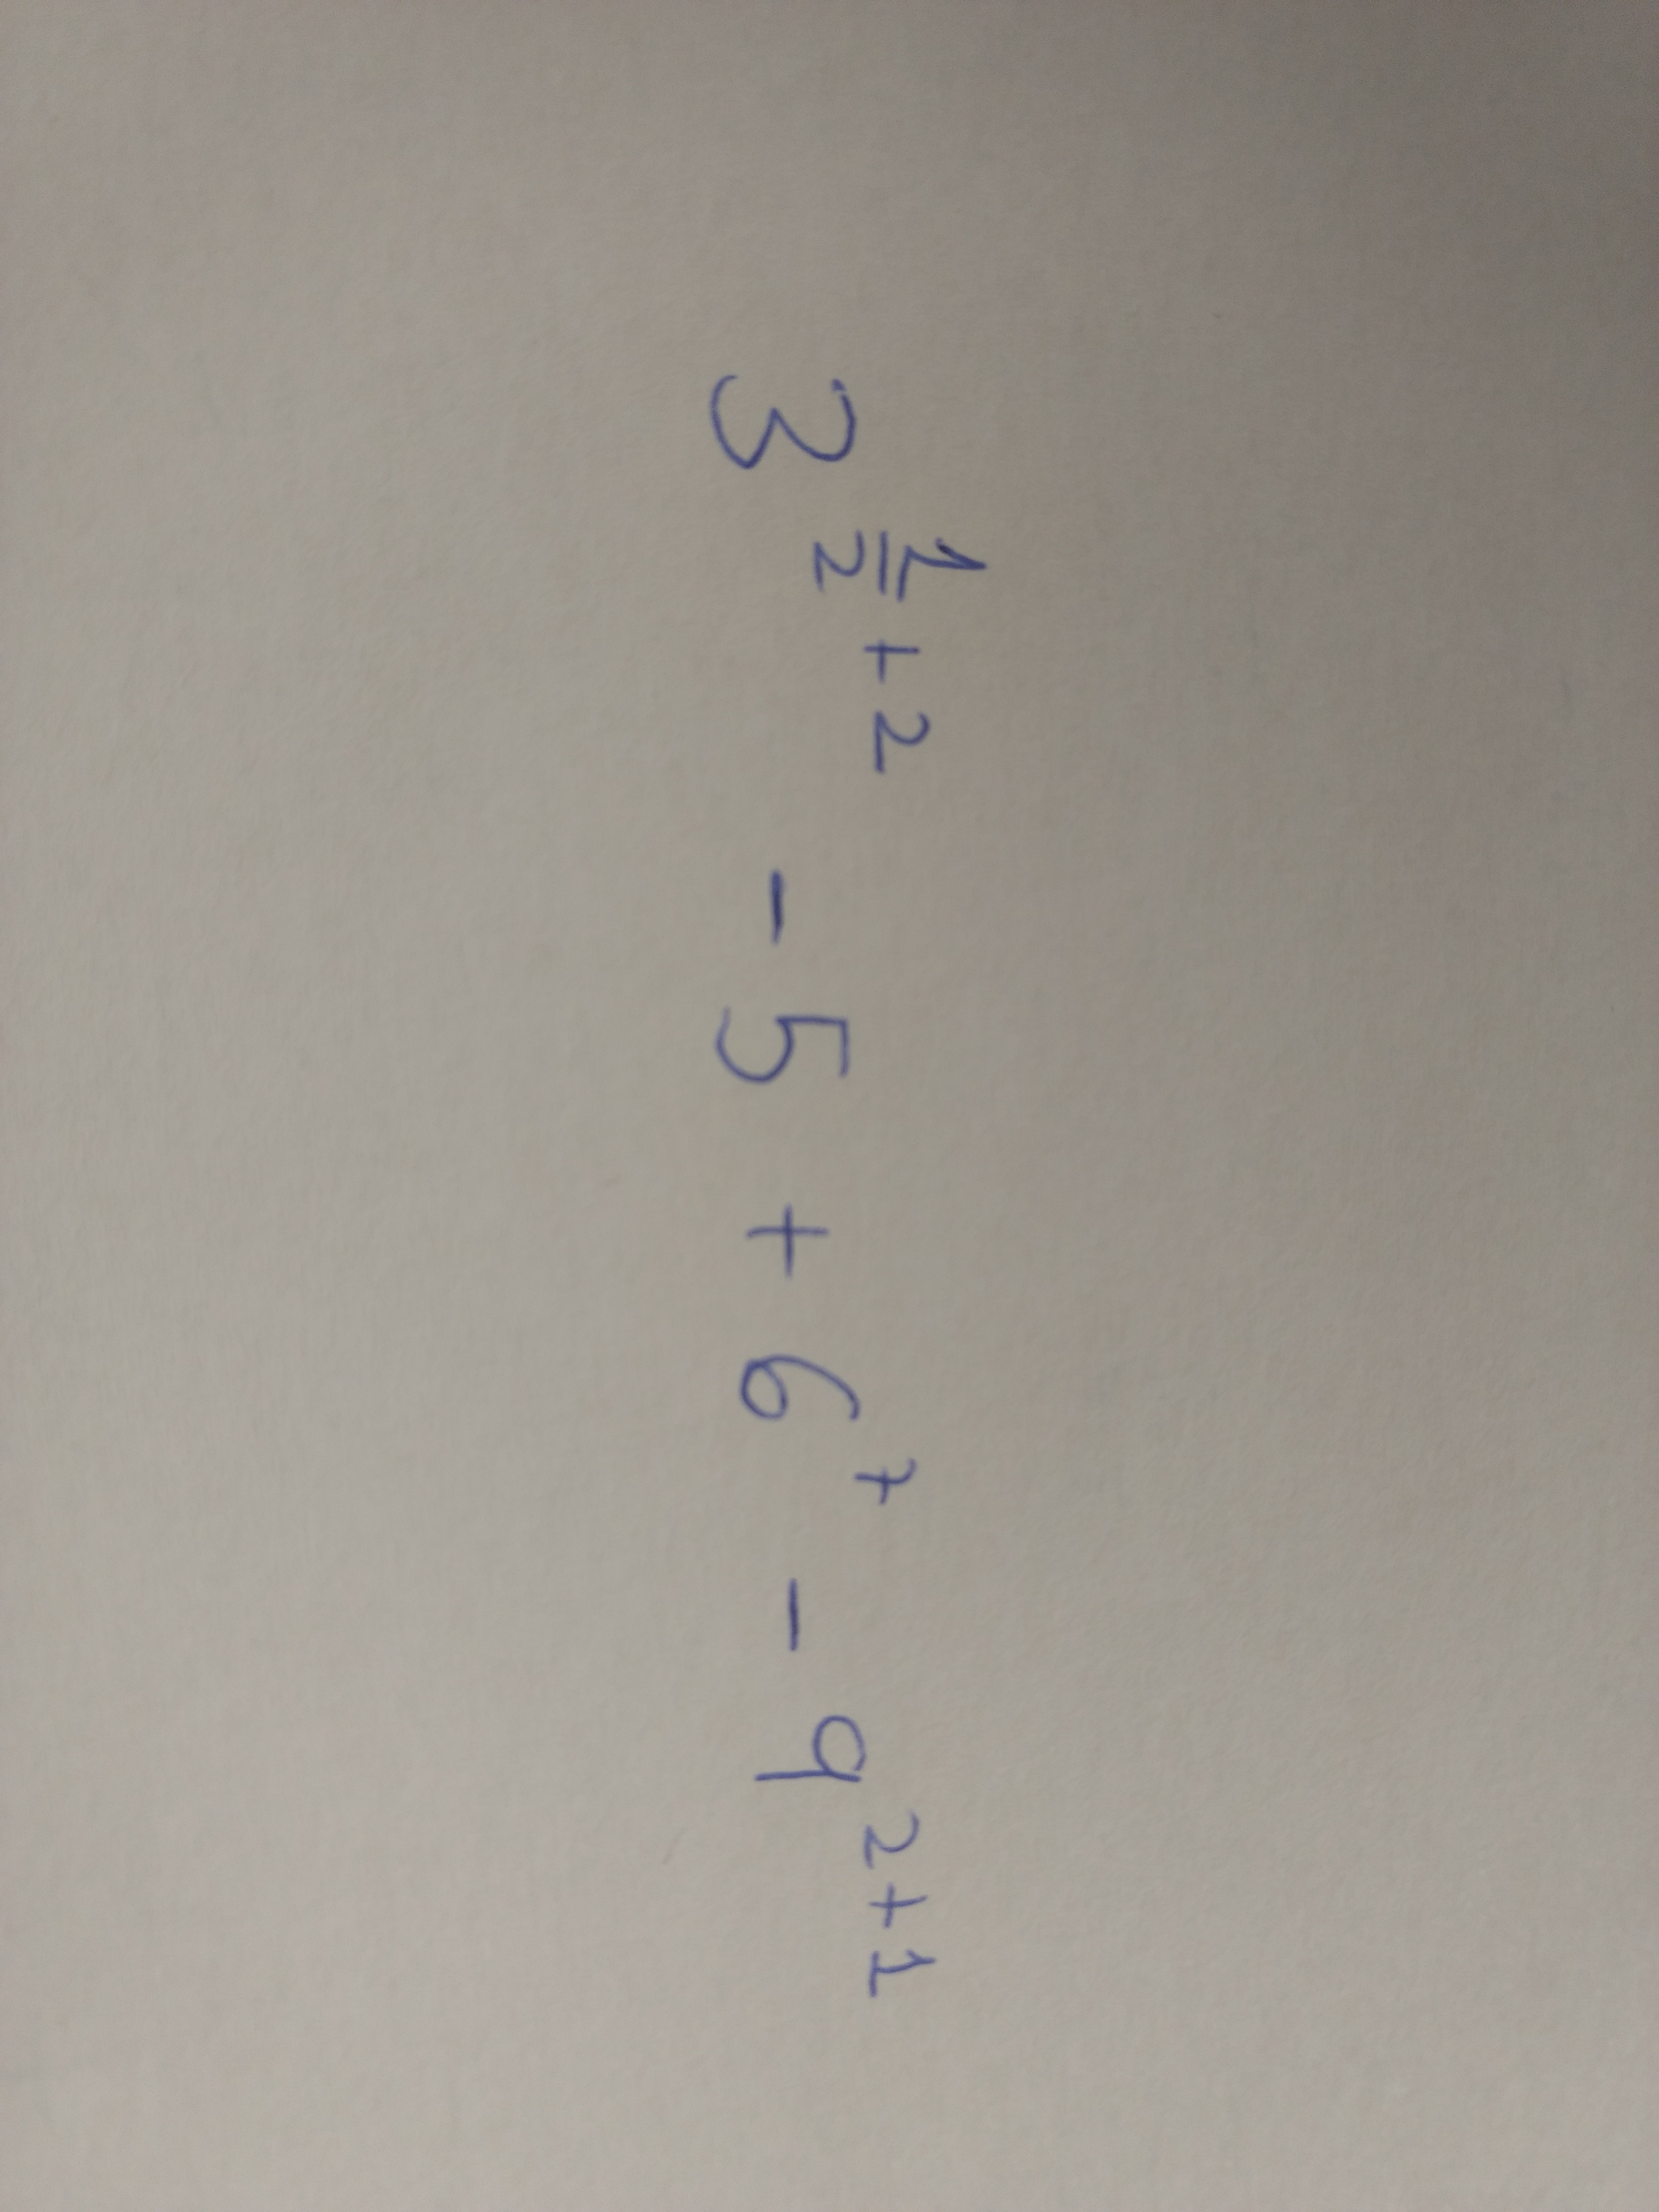 3^{\frac{1}{2}+2} - 5 + 6^7 - 9^{2+1}